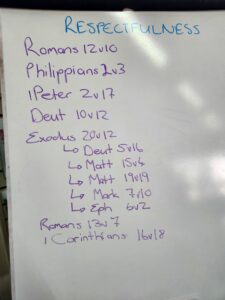 RESPECTFULNESS
Romans 12v10
Philippians 2v3
1Peter 2v17
Deut 10v12
Exodus 20v12
↳ Deut 5v16
↳ Matt 15v4
↳ Matt 19v19
↳ Mark 7v10
↳ Eph 6v2
Romans 13v7
1 Corinthians 16v18